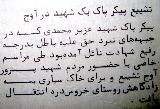 تشییع پیکر پاک یک شهید در آوج
پیکر پاک شهید عزیز محمدی که در
جبهه‌های نبرد حق علیه باطل بدرجه
رفیع شهادت نائل آمده بود طی مراسم
خاصی با حضور مردم شهید پرور
آوج تشییع و برای خاک سپاری به
زادگاهش روستای خرومدره انتقال